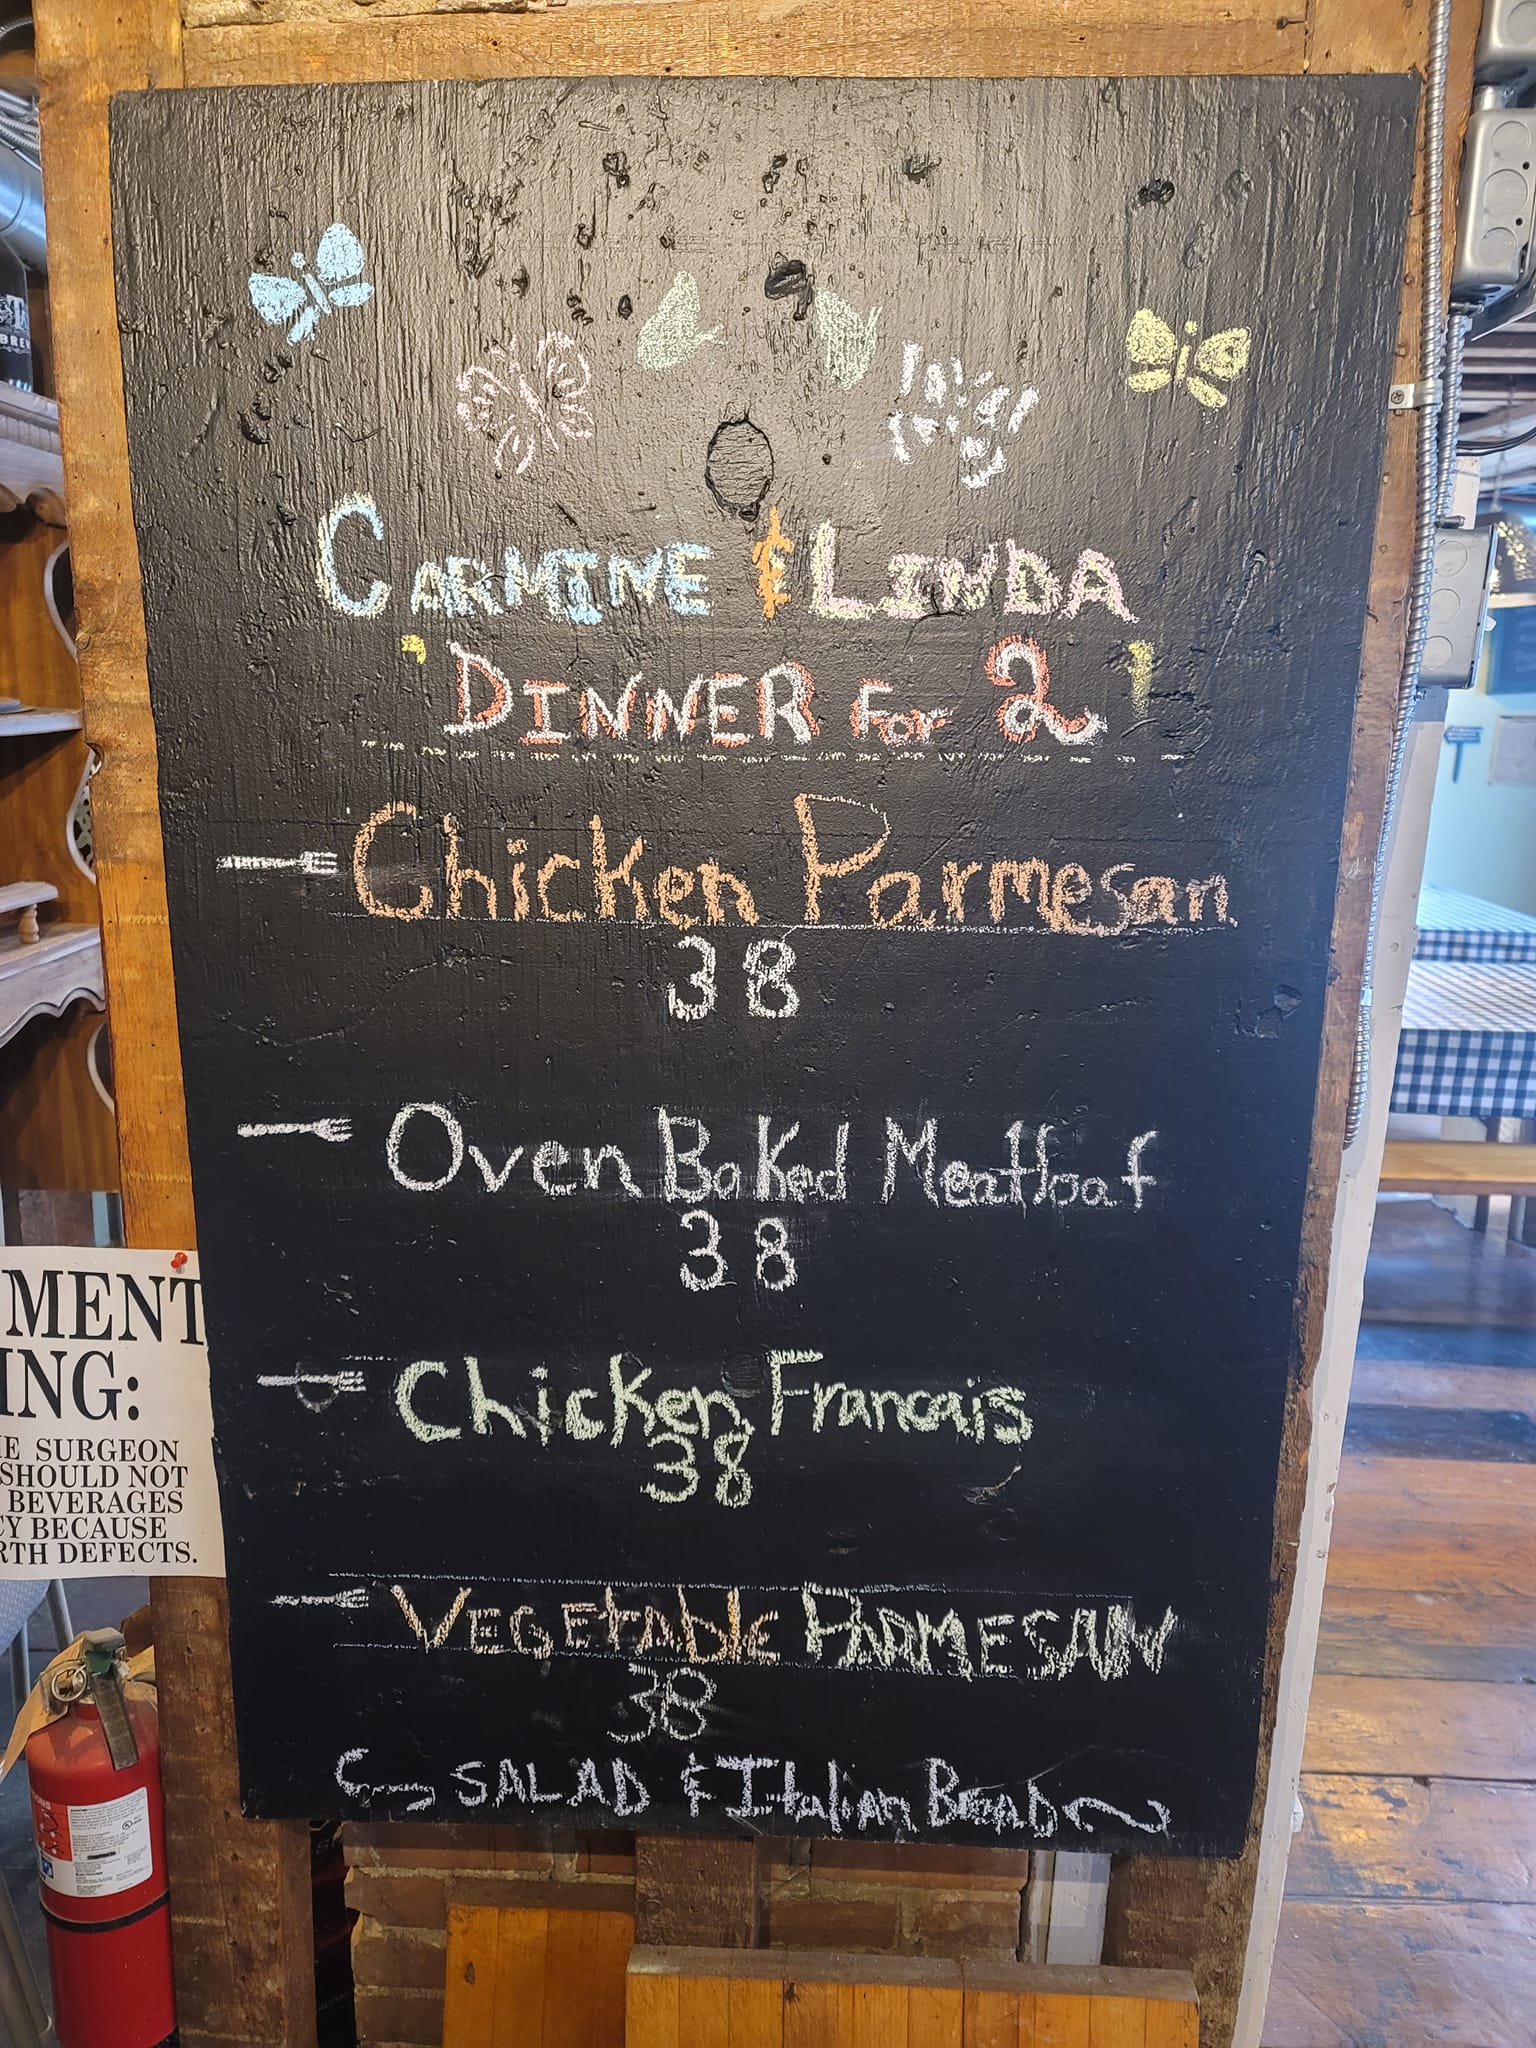 CARMINE & LINDA
"DINNER For 2"
Chicken Parmesan
38
Oven Baked Meatloaf
38
Chicken Francais
38
VEGETABLE PARMESAN
38
SALAD & Italian Bread
MENT
ING:
E SURGEON
SHOULD NOT
BEVERAGES
CY BECAUSE
RTH DEFECTS.
BREW